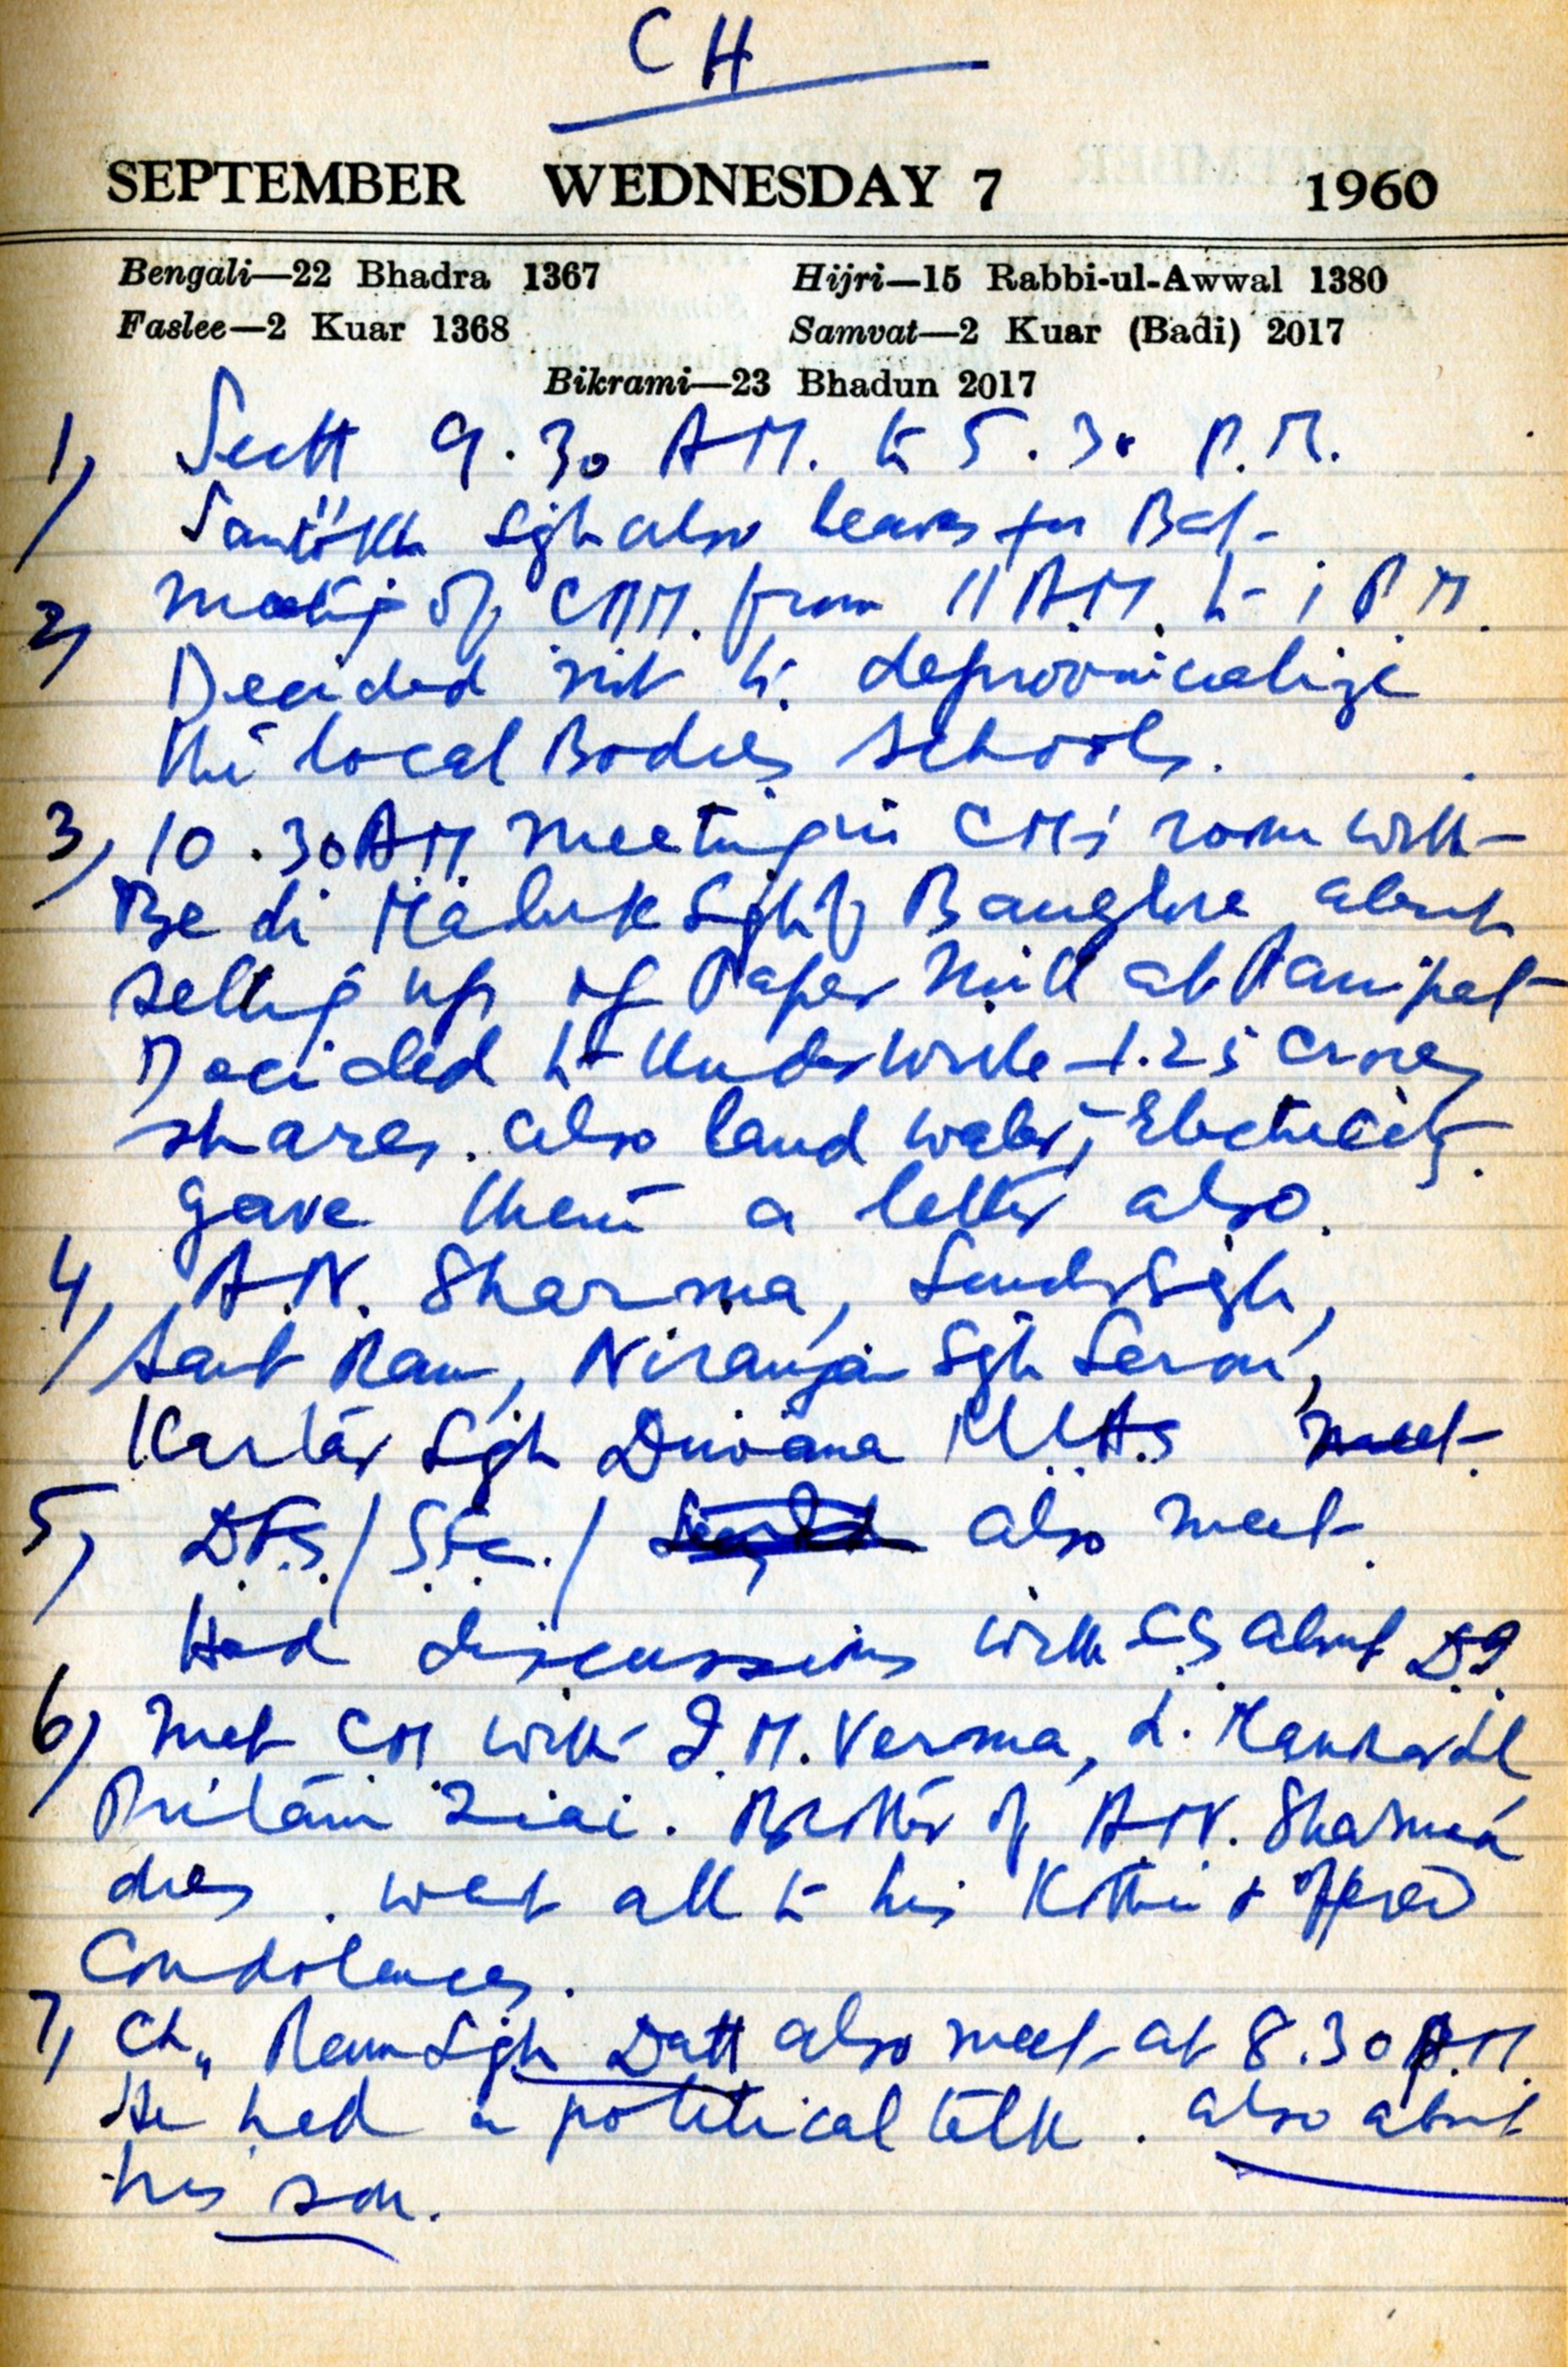 CH
SEPTEMBER WEDNESDAY 7 1960
Bengali—22 Bhadra 1367 Hijri—15 Rabbi-ul-Awwal 1380
Faslee—2 Kuar 1368 Samvat—2 Kuar (Badi) 2017
Bikrami—23 Bhadun 2017
1, Sectt 9.30 AM. to 5.30 P.M.
Santokh Sgh also leaves for
2, meeting of from 11 A.M. to 1 P.M.
Decided not to deprovincialize
the local Bodies schools.
3, 10.30 AM meeting in CM's room with
Bedi Maluk Sgh of Banglore about
setting up of Paper Mill at Panipat
Decided to Underwrite 1.25 crores
shares. also land water, Electricity.
gave them a letter also.
4, A.N. Sharma, Sgh,
Sant Ram, Niranjan Sgh
Kartar Sgh Diwana MLAs meet.
5, also meet.
Had discussions with CS about
6, met CM with Verma, L. Manohar Lal
Pritam Ziai. Brother of A.N. Sharma
dies. went all to his Kothi & offered
Condolences.
7, Ch. Ram Sgh Datt also meet at 8.30 A.M.
He had a political talk. also about
his son.